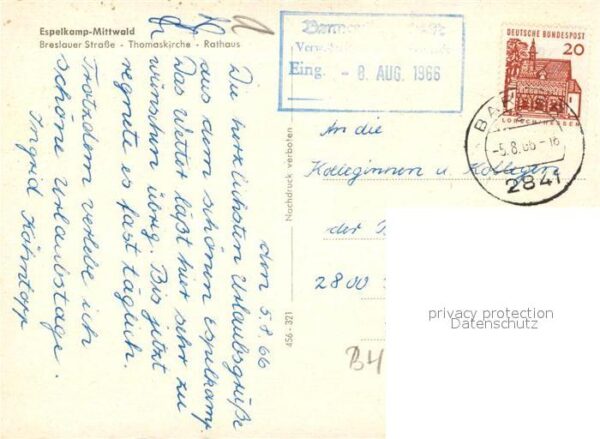 Espelkamp-Mittwald
Breslauer Straße - Thomaskirche - Rathaus
den 5.8.66
Die herzlichsten Urlaubsgrüße
aus dem schönen Espelkamp.
Das Wetter läßt hier sehr zu
wünschen übrig. Bis jetzt
regnete es fast täglich.
Trotzdem verlebe ich
schöne Urlaubstage.
Ingrid
Nachdruck verboten
456 - 321
Eing. - 8. AUG. 1966
DEUTSCHE BUNDESPOST
20
-5.8.66-16
2841
An die
Kolleginnen u. Kollegen
der
2800
B4
privacy protection
Datenschutz